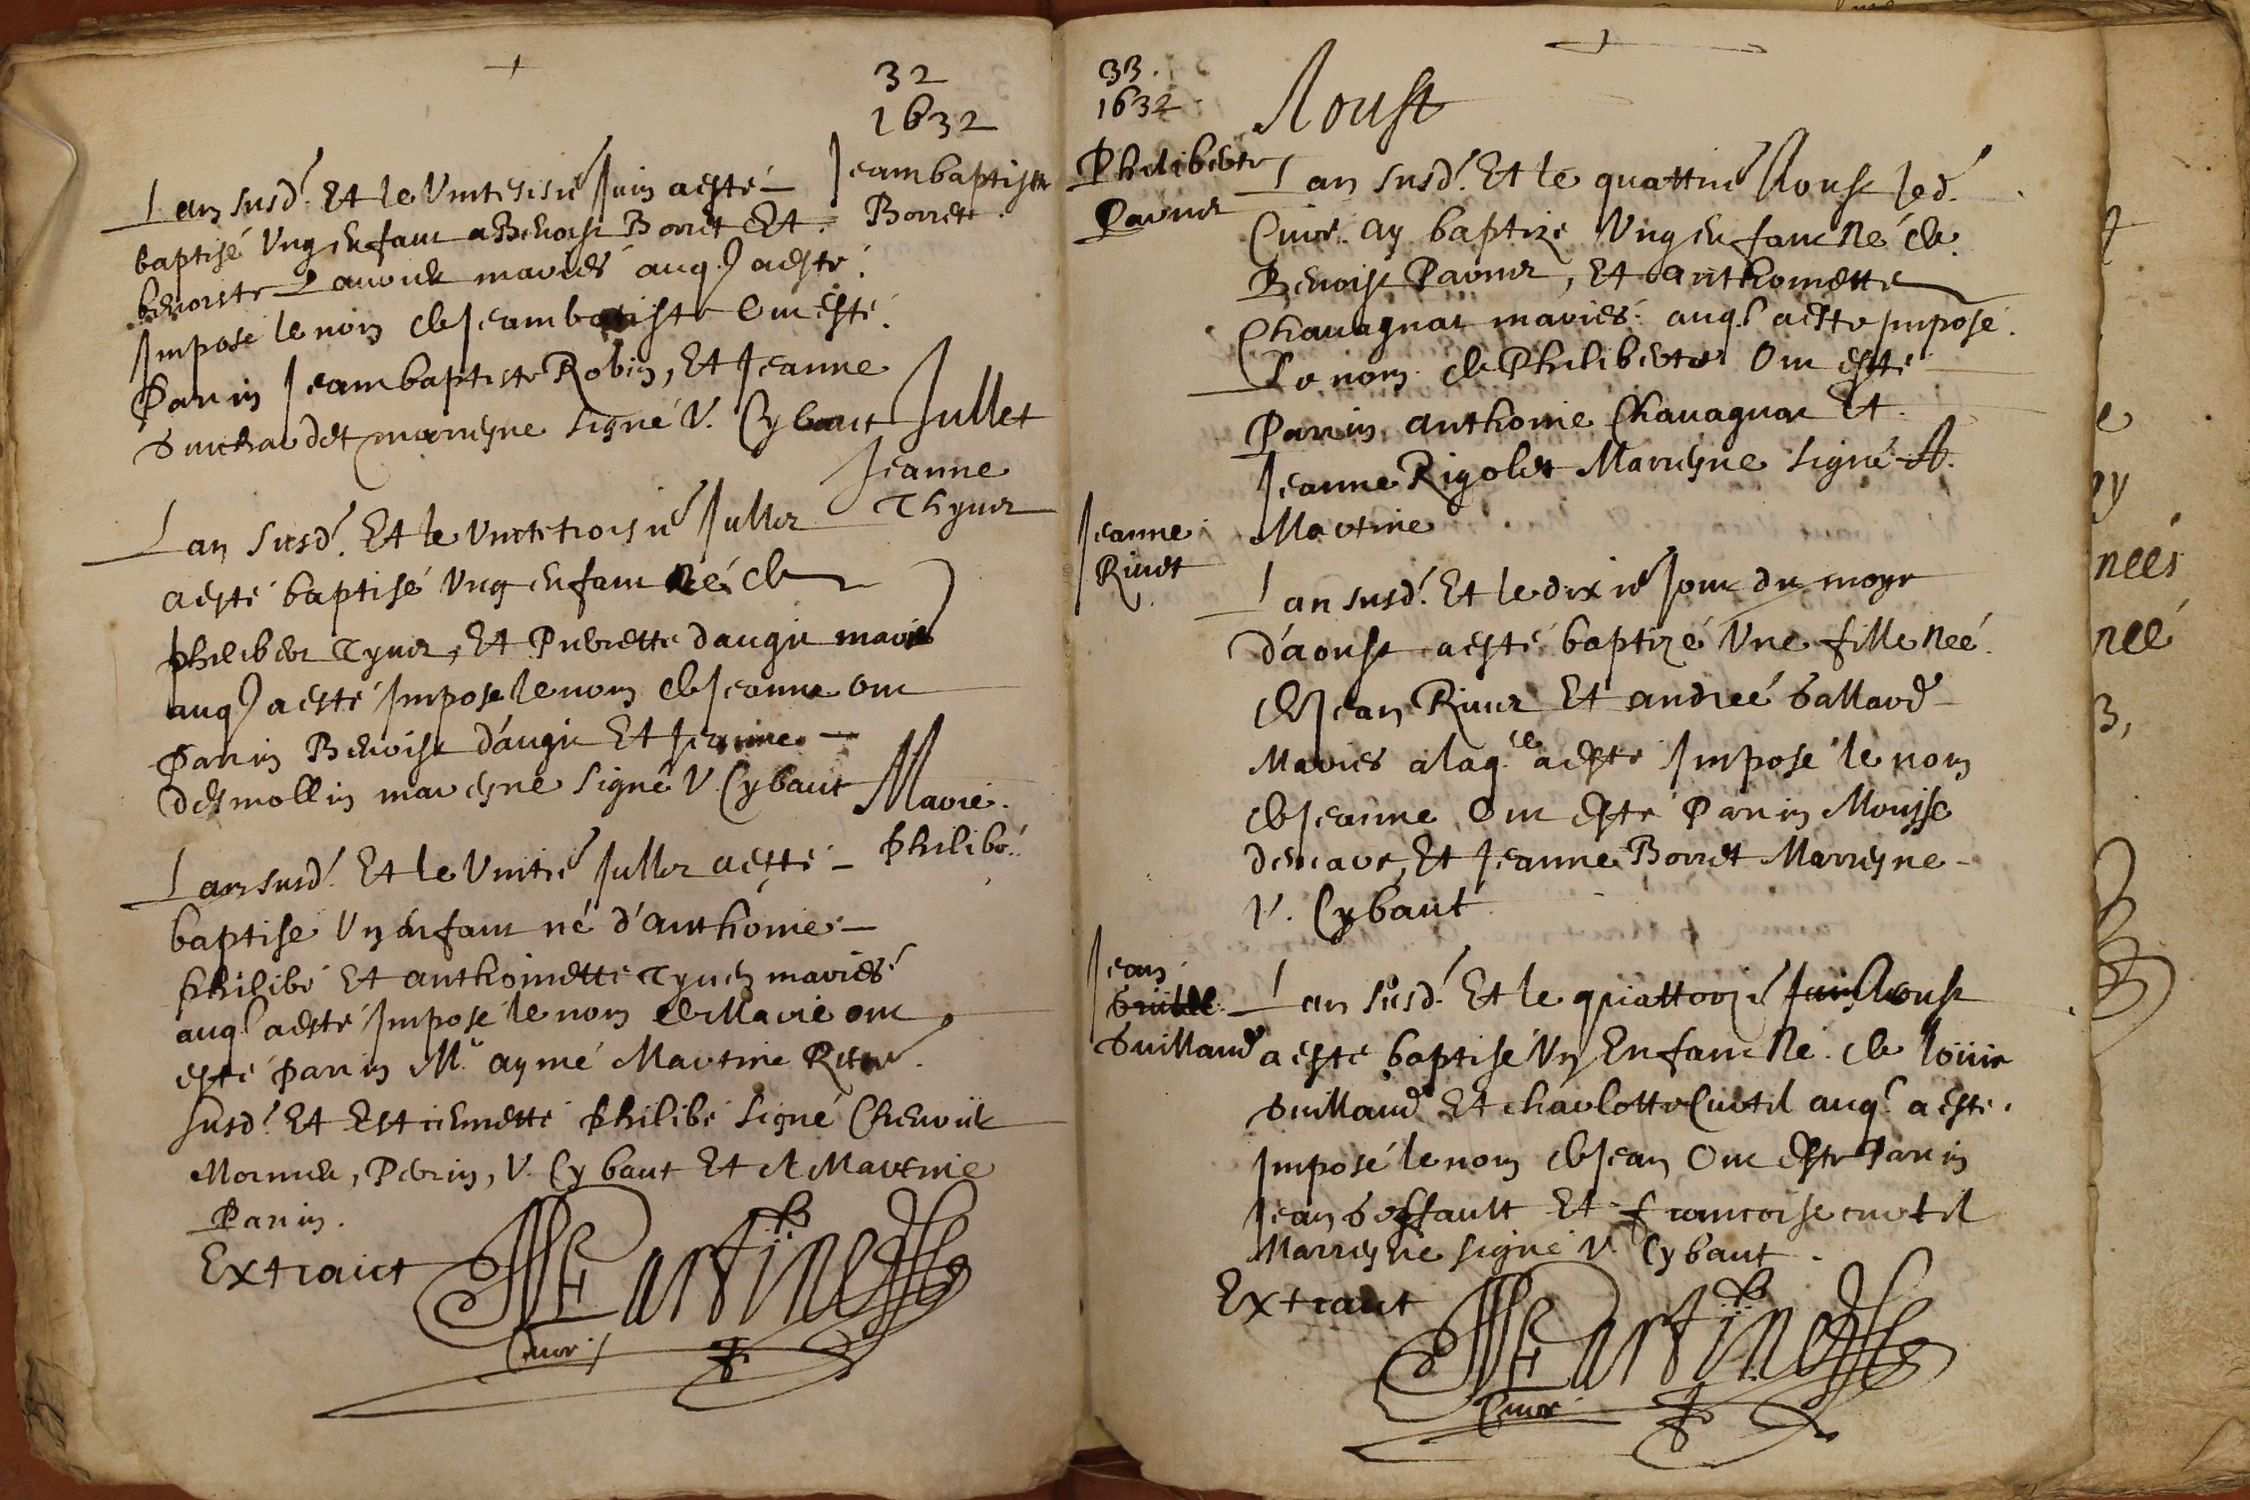 32
1632
Jeambaptiste
Borret
Lan susd. Et le Vintesisie Juin aesté
baptisé Ung enfant a Benoist Borret Et
benoiste Lauvie mariés auq. aeste
Imposé le nom de Jeambatiste Ont esté
Parrin Jeambaptiste Robin, Et Jeanne
marreyne signé V. Cybaut
Jullet
Jeanne
Thyver
Lan susd. Et le Vintetroisie Jullet
aesté baptisé Ung enfant Né de
philibert Tyver, Et Pierrette daugie mariés
auq. aesté Imposé le nom de Jeanne ont
Parrin Benoist d'augie Et Jeanne
desmollin mareyne signé V. Cybaut
Marie
philibé
Lan susd. Et le Vintié Jullet aesté
baptisé Un enfant né d'anthoine
philibé Et anthoinette Tyver mariés
auq. aesté Imposé le nom de Marie ont
esté parrin M. aymé Martine
susd. Et Estiennette philibé signé
Mornier, Perrin, V. Cybaut Et A Martine
Parrin.
Extraict Martine
Curé
33.
1632
Aoust
Philiberte
Paviner
Lan susd. Et le quattrie Aoust led.
Curé ay baptize Ung enfant Né de
Benoist Paviner, Et anthoinette
Chavagnat mariés auq. aeste Imposé
Le nom de Philiberte Ont esté
Parrin anthoine Chavagnat Et
Jeanne Rigolet Marreyne signé A.
Martine
Jeanne
Rivet
Lan susd. Et le dixie Jour du moys
d'aoust aesté baptizé Une fille Neé
de Jean River Et andreé Gallard
Mariés alaq.le aesté Imposé le nom
de Jeanne Ont esté Parrin
Et Jeanne Borret Marreyne
V. Cybaut
Jean
Guillaud
Lan susd. Et le quattorzie Aoust
aesté baptisé Un Enfant Né de louis
Guillaud Et charlotte Curtil auq. aesté
Imposé le nom de Jean Ont esté Parrin
Jean Goffault Et francoise curtil
Marreyne signé V. Cybaut
Extraict Martine
Curé